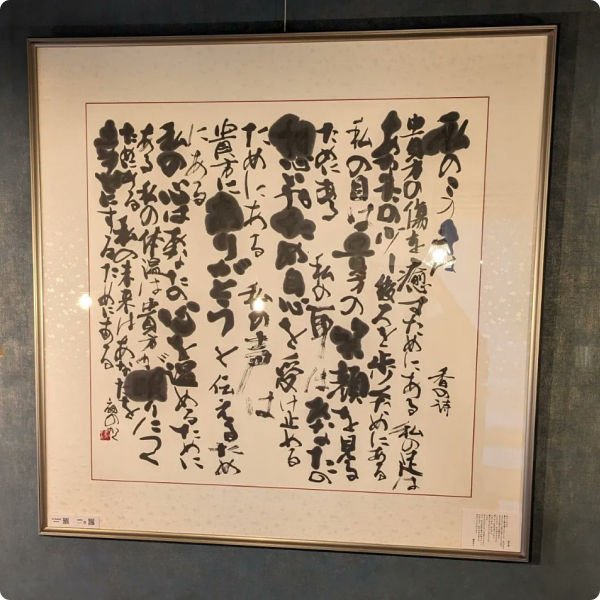 私のこの手は
香の詩
貴方の傷を癒すためにある 私の足は
あなたの少し後ろを歩くためにある
私の目は貴方の笑顔を見る
ためにある 私の耳はあなたの
想いやため息を受け止める
ためにある 私の声は
貴方にありがとうと伝えるため
にある
私の心はあなたの心を温めるために
ある 私の体温は貴方が眠りにつく
ためにある 私の未来はあなたを
幸せにするためにある